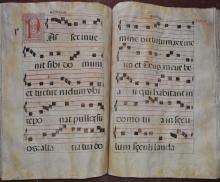 PAsser inve
nit sibi do mum
et turtur nidum ubi
repo nat pullos su
os: alta ria tua do
mine virtutum rex me
us et Deus meus be
ati qui habitant in
domo tu a in secu
lum seculi lauda